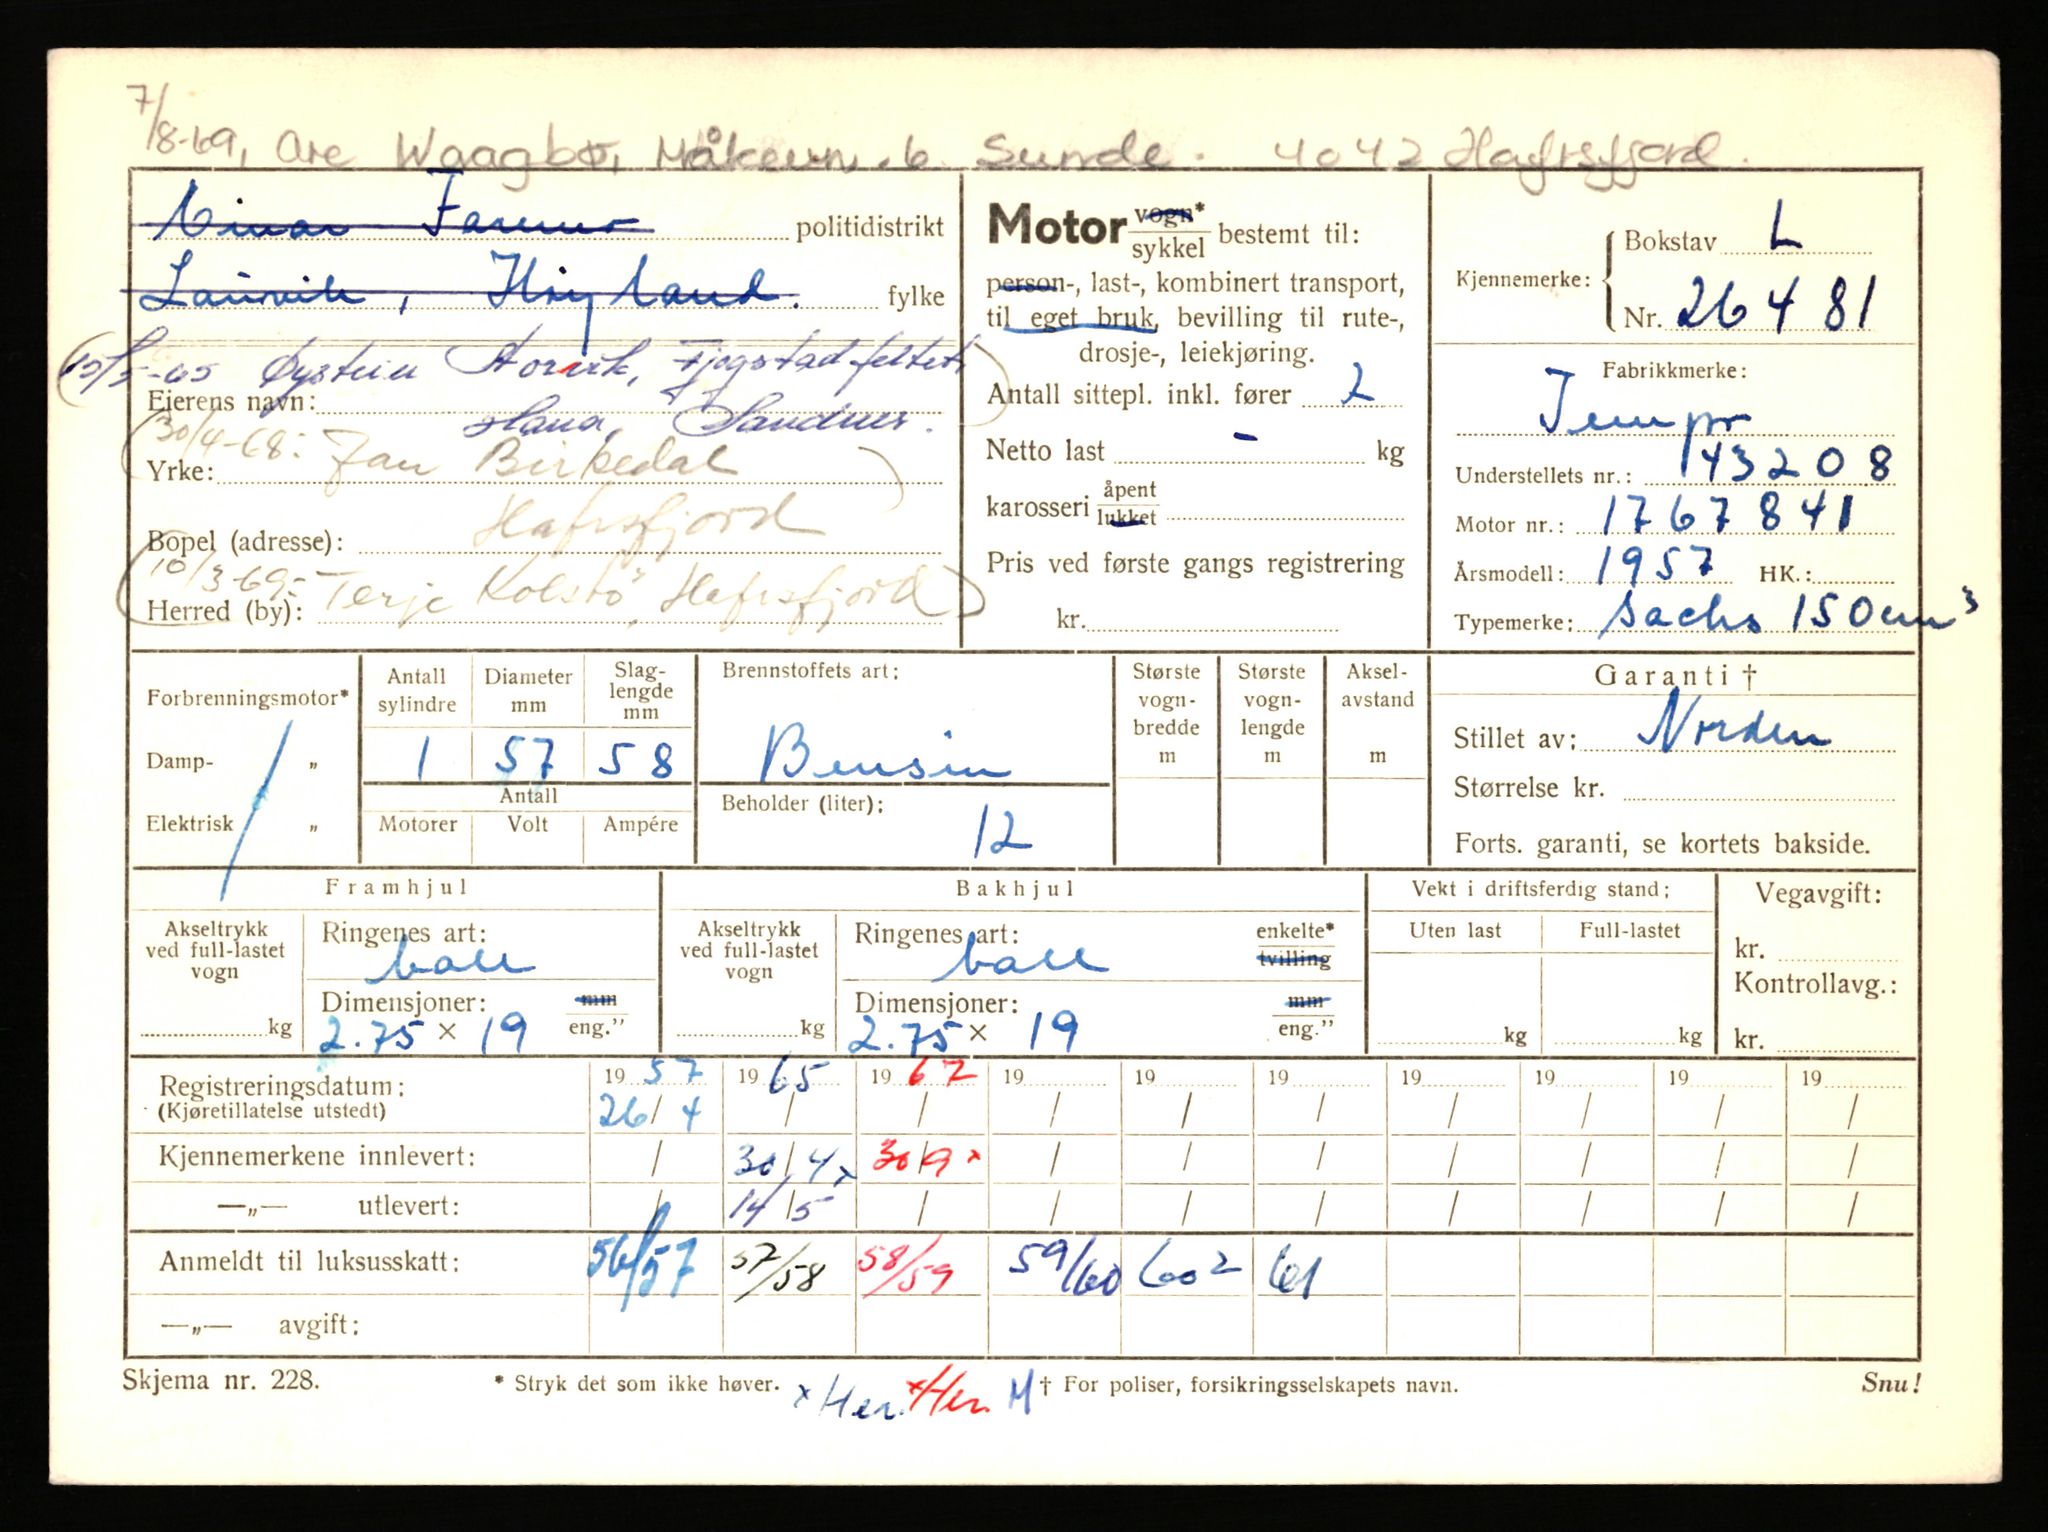 7/8-69, Are Waagbø, Måkevn. 6 Sunde. 4042 Hafrsfjord.
Einar politidistrikt
Høyland. fylke
15/5-65 Øystein Storvik, Fjogstadfeltet,
Eierens navn: Hana, Sandnes.
30/4-68: Jan Birkedal
Yrke:
Hafrsfjord
Bopel (adresse):
10/3-69:- Terje Kolstø, Hafrsfjord
Herred (by):
Motor vogn* sykkel bestemt til:
person-, last-, kombinert transport,
til eget bruk, bevilling til rute-,
drosje-, leiekjøring.
Antall sittepl. inkl. fører 2
Netto last - kg
karosseri åpent lukket
Pris ved første gangs registrering
kr.
Kjennemerke: Bokstav L
Nr. 26481
Fabrikkmerke:
Tempo
Understellets nr.: 143208
Motor nr.: 1767841
Årsmodell: 1957 HK.:
Typemerke: Sachs 150 cm³
Forbrenningsmotor*
Damp- „
Elektrisk „
Antall sylindre
Diameter mm
Slag-lengde mm
1 57 58
Antall
Motorer Volt Ampére
Brennstoffets art:
Bensin
Beholder (liter):
12
Største vogn-bredde m
Største vogn-lengde m
Aksel-avstand m
Garanti †
Stillet av: Norden
Størrelse kr.
Forts. garanti, se kortets bakside.
Framhjul
Akseltrykk ved full-lastet vogn
kg
Ringenes art:
ball
Dimensjoner: mm
2.75 × 19 eng."
Bakhjul
Akseltrykk ved full-lastet vogn
kg
Ringenes art: enkelte*
ball tvilling
Dimensjoner: mm
2.75 × 19 eng."
Vekt i driftsferdig stand:
Uten last Full-lastet
kg kg
Vegavgift:
kr.
Kontrollavg.:
kr.
Registreringsdatum: 19 57 19 65 19 67 19 19 19 19 19 19 19
(Kjøretillatelse utstedt) 26/4 / / / / / / / / /
Kjennemerkene innlevert: / 30/4 x 30/9 x / / / / / / /
—„— utlevert: / 14/5 / / / / / / / /
Anmeldt til luksusskatt: 56/57 57/58 58/59 59/60 60 2 61
—„— avgift:
Skjema nr. 228. * Stryk det som ikke høver. x Her. x Her. M † For poliser, forsikringsselskapets navn. Snu!